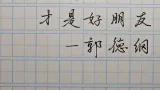 才是好朋友
—郭德纲